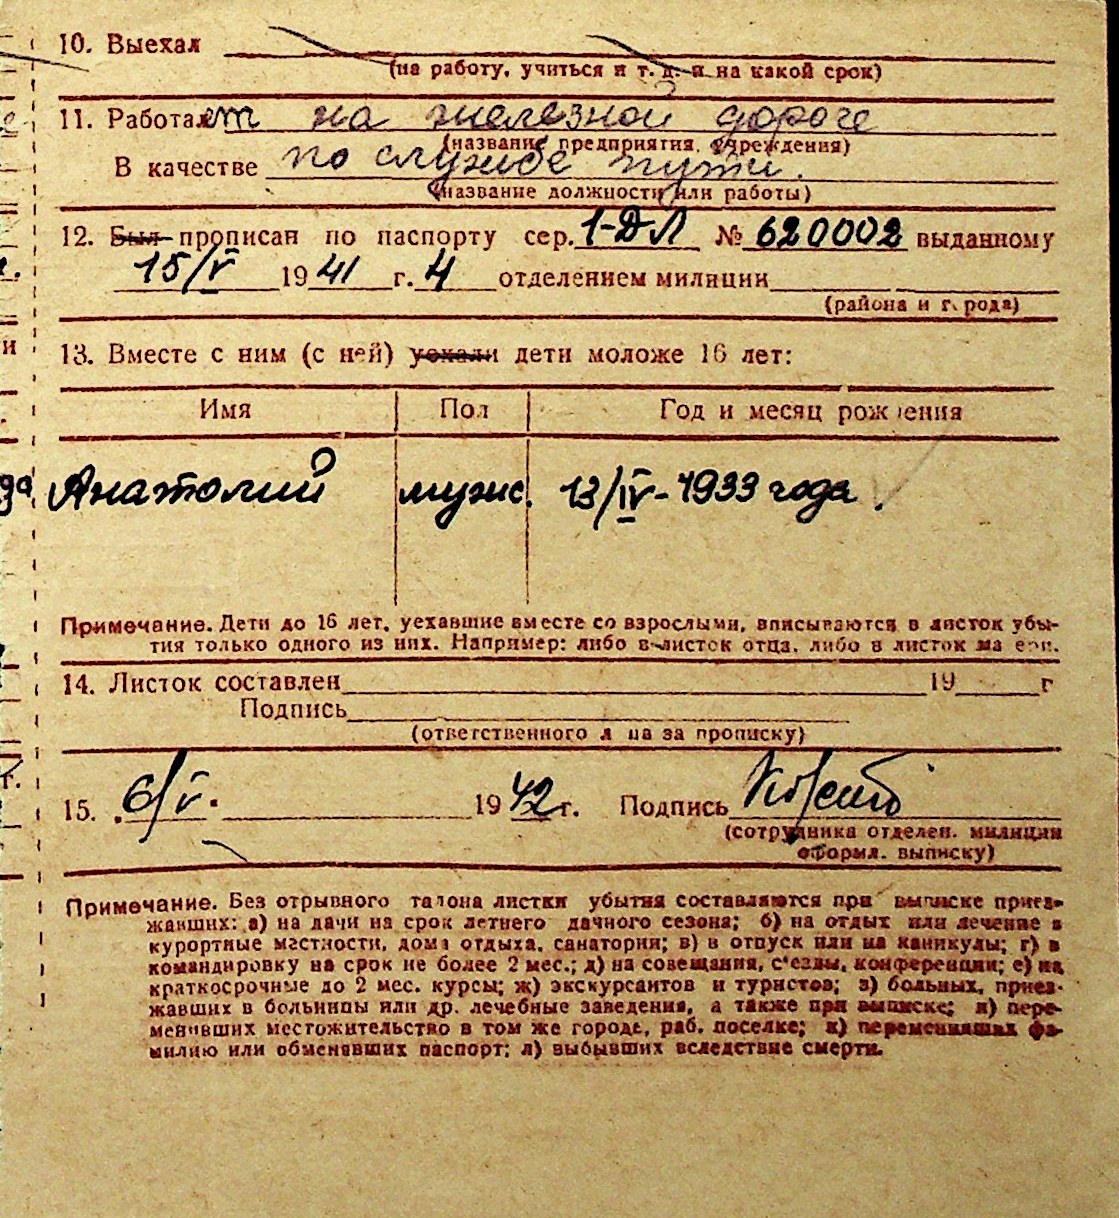 10. Выехал
(на работу, учиться и т. д. и на какой срок)
11. Работает на железной дороге
(название предприятия, учреждения)
В качестве по службе пути.
(название должности или работы)
12. Был прописан по паспорту сер. 1-ДЛ № 620002 выданному
15/V 1941 г. 4 отделением милиции
(района и города)
13. Вместе с ним (с ней) уехали дети моложе 16 лет:
Имя Пол Год и месяц рождения
Анатолий мужс. 13/IV - 1933 года.
Примечание. Дети до 16 лет, уехавшие вместе со взрослыми, вписываются в листок убы-
тия только одного из них. Например: либо в листок отца, либо в листок матери.
14. Листок составлен 19 г
Подпись
(ответственного лица за прописку)
15. 6/V. 1942 г. Подпись
(сотрудника отделен. милиции
оформл. выписку)
Примечание. Без отрывного талона листки убытия составляются при выписке приез-
жавших: а) на дачи на срок летнего дачного сезона; б) на отдых или лечение в
курортные местности, дома отдыха, санатории; в) в отпуск или на каникулы; г) в
командировку на срок не более 2 мес.; д) на совещания, с'езды, конференции; е) на
краткосрочные до 2 мес. курсы; ж) экскурсантов и туристов; з) больных, приез-
жавших в больницы или др. лечебные заведения, а также при выписке; и) пере-
менивших местожительство в том же городе, раб. поселке; к) переменивших фа-
милию или обменявших паспорт; л) выбывших вследствие смерти.